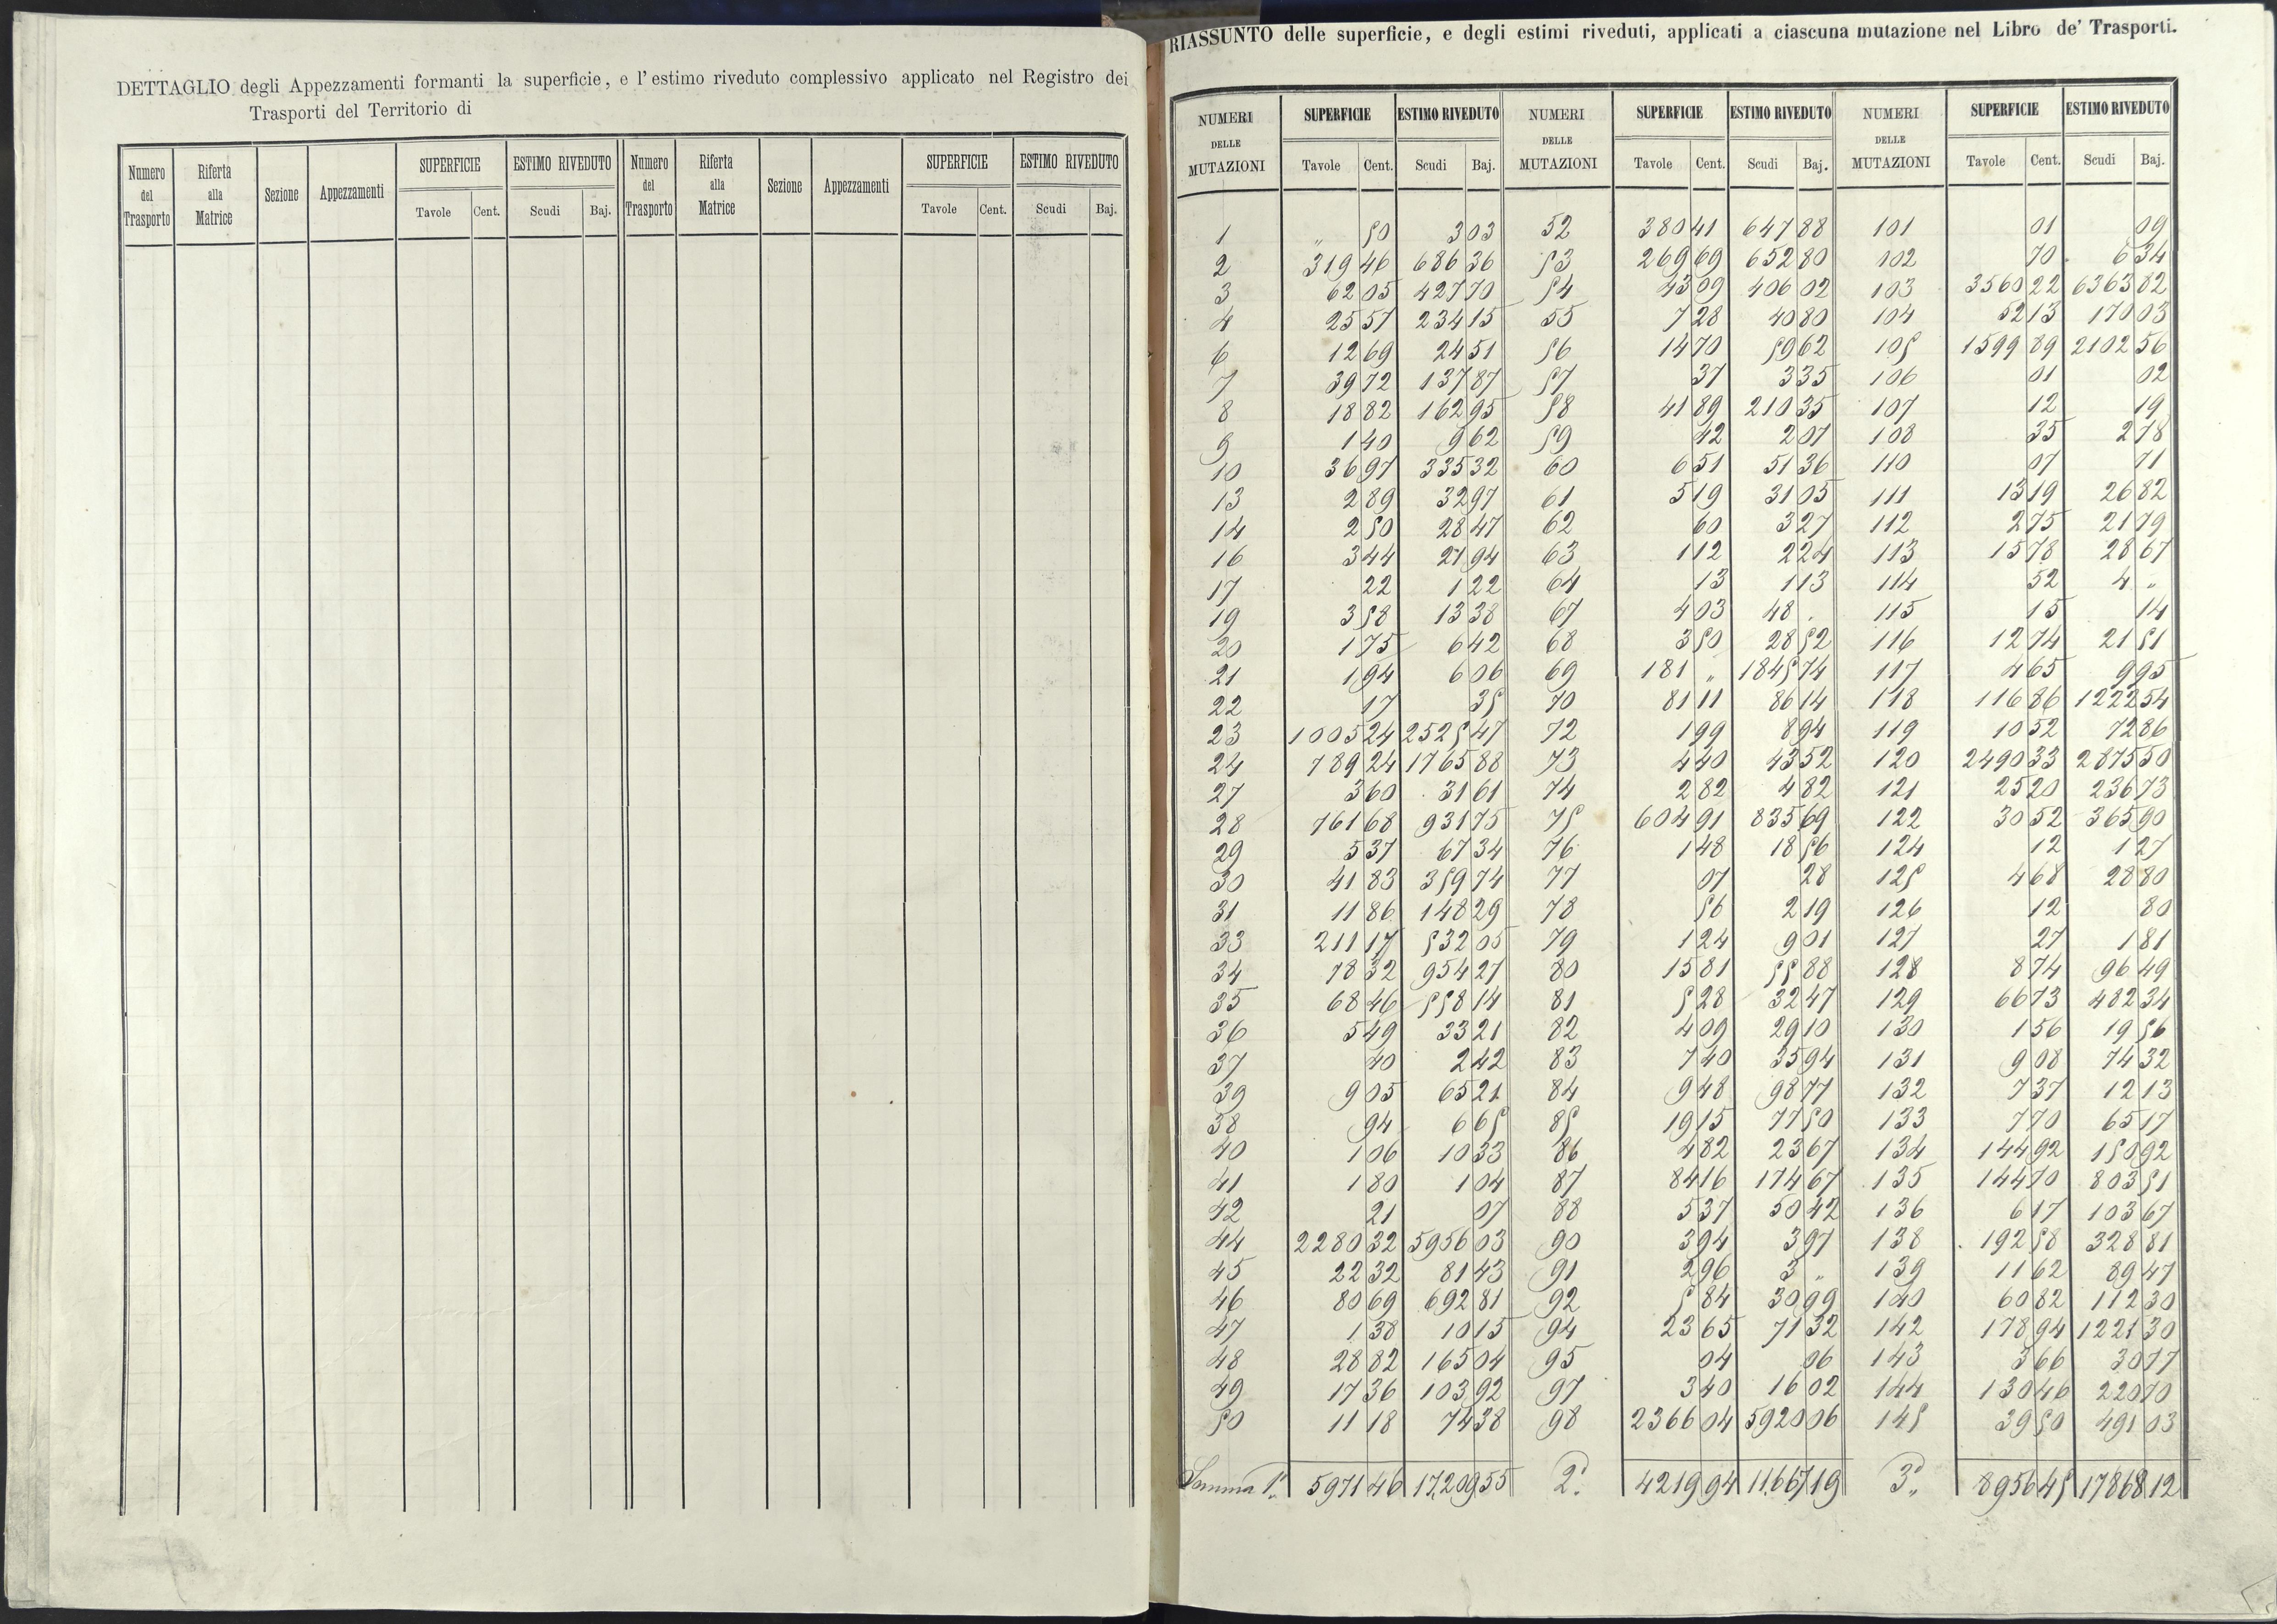 DETTAGLIO degli Appezzamenti formanti la superficie, e l'estimo riveduto complessivo applicato nel Registro dei
Trasporti del Territorio di
Numero del Trasporto Riferta alla Matrice Sezione Appezzamenti SUPERFICIE ESTIMO RIVEDUTO Numero del Trasporto Riferta alla Matrice Sezione Appezzamenti SUPERFICIE ESTIMO RIVEDUTO
Tavole Cent. Scudi Baj. Tavole Cent. Scudi Baj.
RIASSUNTO delle superficie, e degli estimi riveduti, applicati a ciascuna mutazione nel Libro de' Trasporti.
NUMERI DELLE MUTAZIONI SUPERFICIE ESTIMO RIVEDUTO NUMERI DELLE MUTAZIONI SUPERFICIE ESTIMO RIVEDUTO NUMERI DELLE MUTAZIONI SUPERFICIE ESTIMO RIVEDUTO
Tavole Cent. Scudi Baj. Tavole Cent. Scudi Baj. Tavole Cent. Scudi Baj.
1 „ 50 3 03 52 380 41 647 88 101 01 09
2 319 46 686 36 53 269 69 652 80 102 70 6 34
3 62 05 427 70 54 43 09 406 02 103 3560 22 6363 82
4 25 57 234 15 55 7 28 40 80 104 52 13 170 03
6 12 69 24 51 56 14 70 59 62 105 1599 89 2102 56
7 39 72 137 87 57 37 3 35 106 01 02
8 18 82 162 95 58 41 89 210 35 107 12 19
9 1 40 9 62 59 42 2 07 108 35 2 78
10 36 97 335 32 60 6 51 51 36 110 07 71
13 2 89 32 97 61 5 19 31 05 111 13 19 26 82
14 2 50 28 47 62 60 3 27 112 2 75 21 79
16 3 44 27 94 63 1 12 2 24 113 15 78 28 67
17 22 1 22 64 13 1 13 114 52 4 „
19 3 58 13 38 67 4 03 48 . 115 15 14
20 1 75 6 42 68 3 50 28 52 116 12 74 21 51
21 1 94 6 06 69 181 „ 1845 74 117 4 65 9 95
22 17 35 70 81 11 86 14 118 116 86 1222 54
23 1005 24 2525 47 72 1 99 8 94 119 10 52 72 86
24 789 24 1765 88 73 4 40 43 52 120 2490 33 2875 50
27 3 60 31 61 74 2 82 4 82 121 25 20 236 73
28 761 68 931 75 75 604 91 835 69 122 30 52 365 90
29 5 37 67 34 76 1 48 18 56 124 12 1 27
30 41 83 359 74 77 07 28 125 4 68 28 80
31 11 86 148 29 78 56 2 19 126 12 80
33 211 17 532 05 79 1 24 9 01 127 27 1 81
34 78 32 954 27 80 15 81 55 88 128 8 74 96 49
35 68 46 558 14 81 5 28 32 47 129 66 73 482 34
36 5 49 33 21 82 4 09 29 10 130 1 56 19 56
37 40 2 42 83 7 40 35 94 131 9 08 74 32
39 9 05 65 21 84 9 48 98 77 132 7 37 12 13
38 94 6 65 85 19 15 77 50 133 7 70 65 17
40 1 06 10 33 86 4 82 23 67 134 144 92 150 92
41 1 80 1 04 87 84 16 174 67 135 144 70 803 51
42 21 07 88 5 37 50 42 136 6 17 103 67
44 2280 32 5956 03 90 3 94 3 97 138 192 58 328 81
45 22 32 81 43 91 2 96 3 „ 139 11 62 89 47
46 80 69 692 81 92 5 84 30 99 140 60 82 112 30
47 1 38 10 15 94 23 65 71 32 142 178 94 1221 30
48 28 82 165 04 95 04 06 143 3 66 30 77
49 17 36 103 92 97 3 40 16 02 144 130 46 220 70
50 11 18 74 38 98 2366 04 5920 06 145 39 50 491 03
Somma 1ª 5971 46 17209 55 2ª 4219 94 11667 19 3ª 8956 45 17868 12